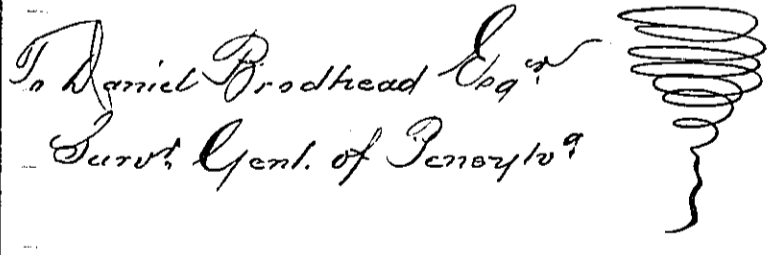 To Daniel Brodhead Esqr.
Survr. Genl. of Pensylva